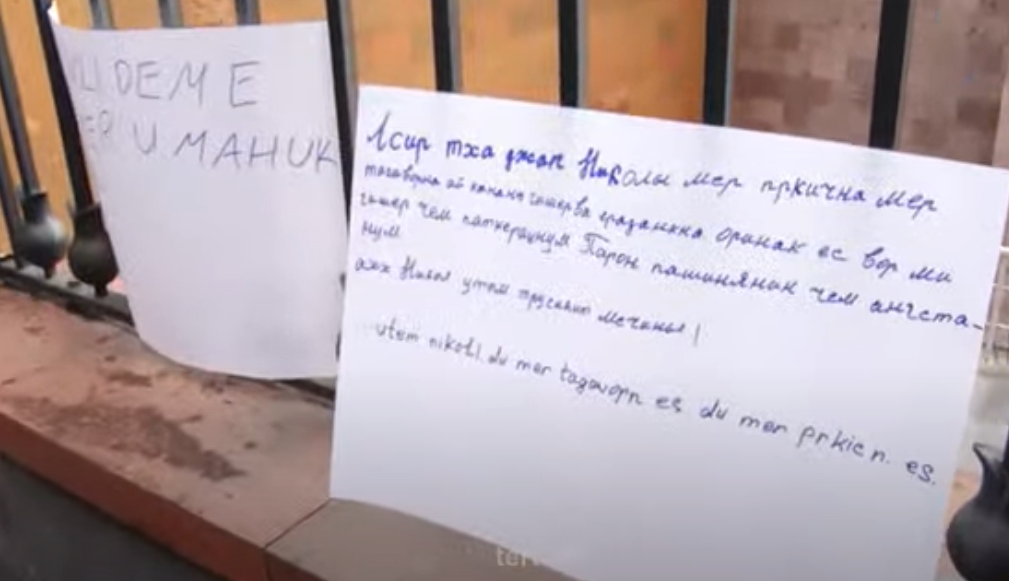 DEME E
U MAHUK
Лсир тха джан Николы мер пркична мер
тагаворна ай канакы гишерва еразанкa оринак ес вор ми
гишер чем паткерацнум Парон пашинянин чем ангста-
нум
ахх Никол утем трусикит мечины!
utem nikoli du mer tagavorn es du mer prkicn. es.